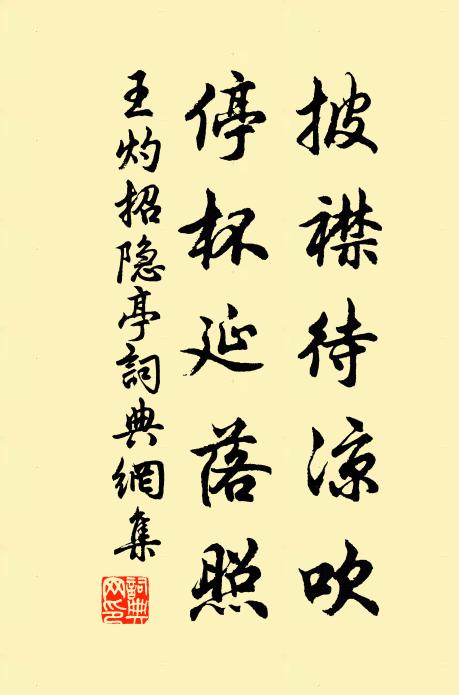 披襟待凉吹
停杯延落照
王灼招隐亭詞典網集
詞典網印